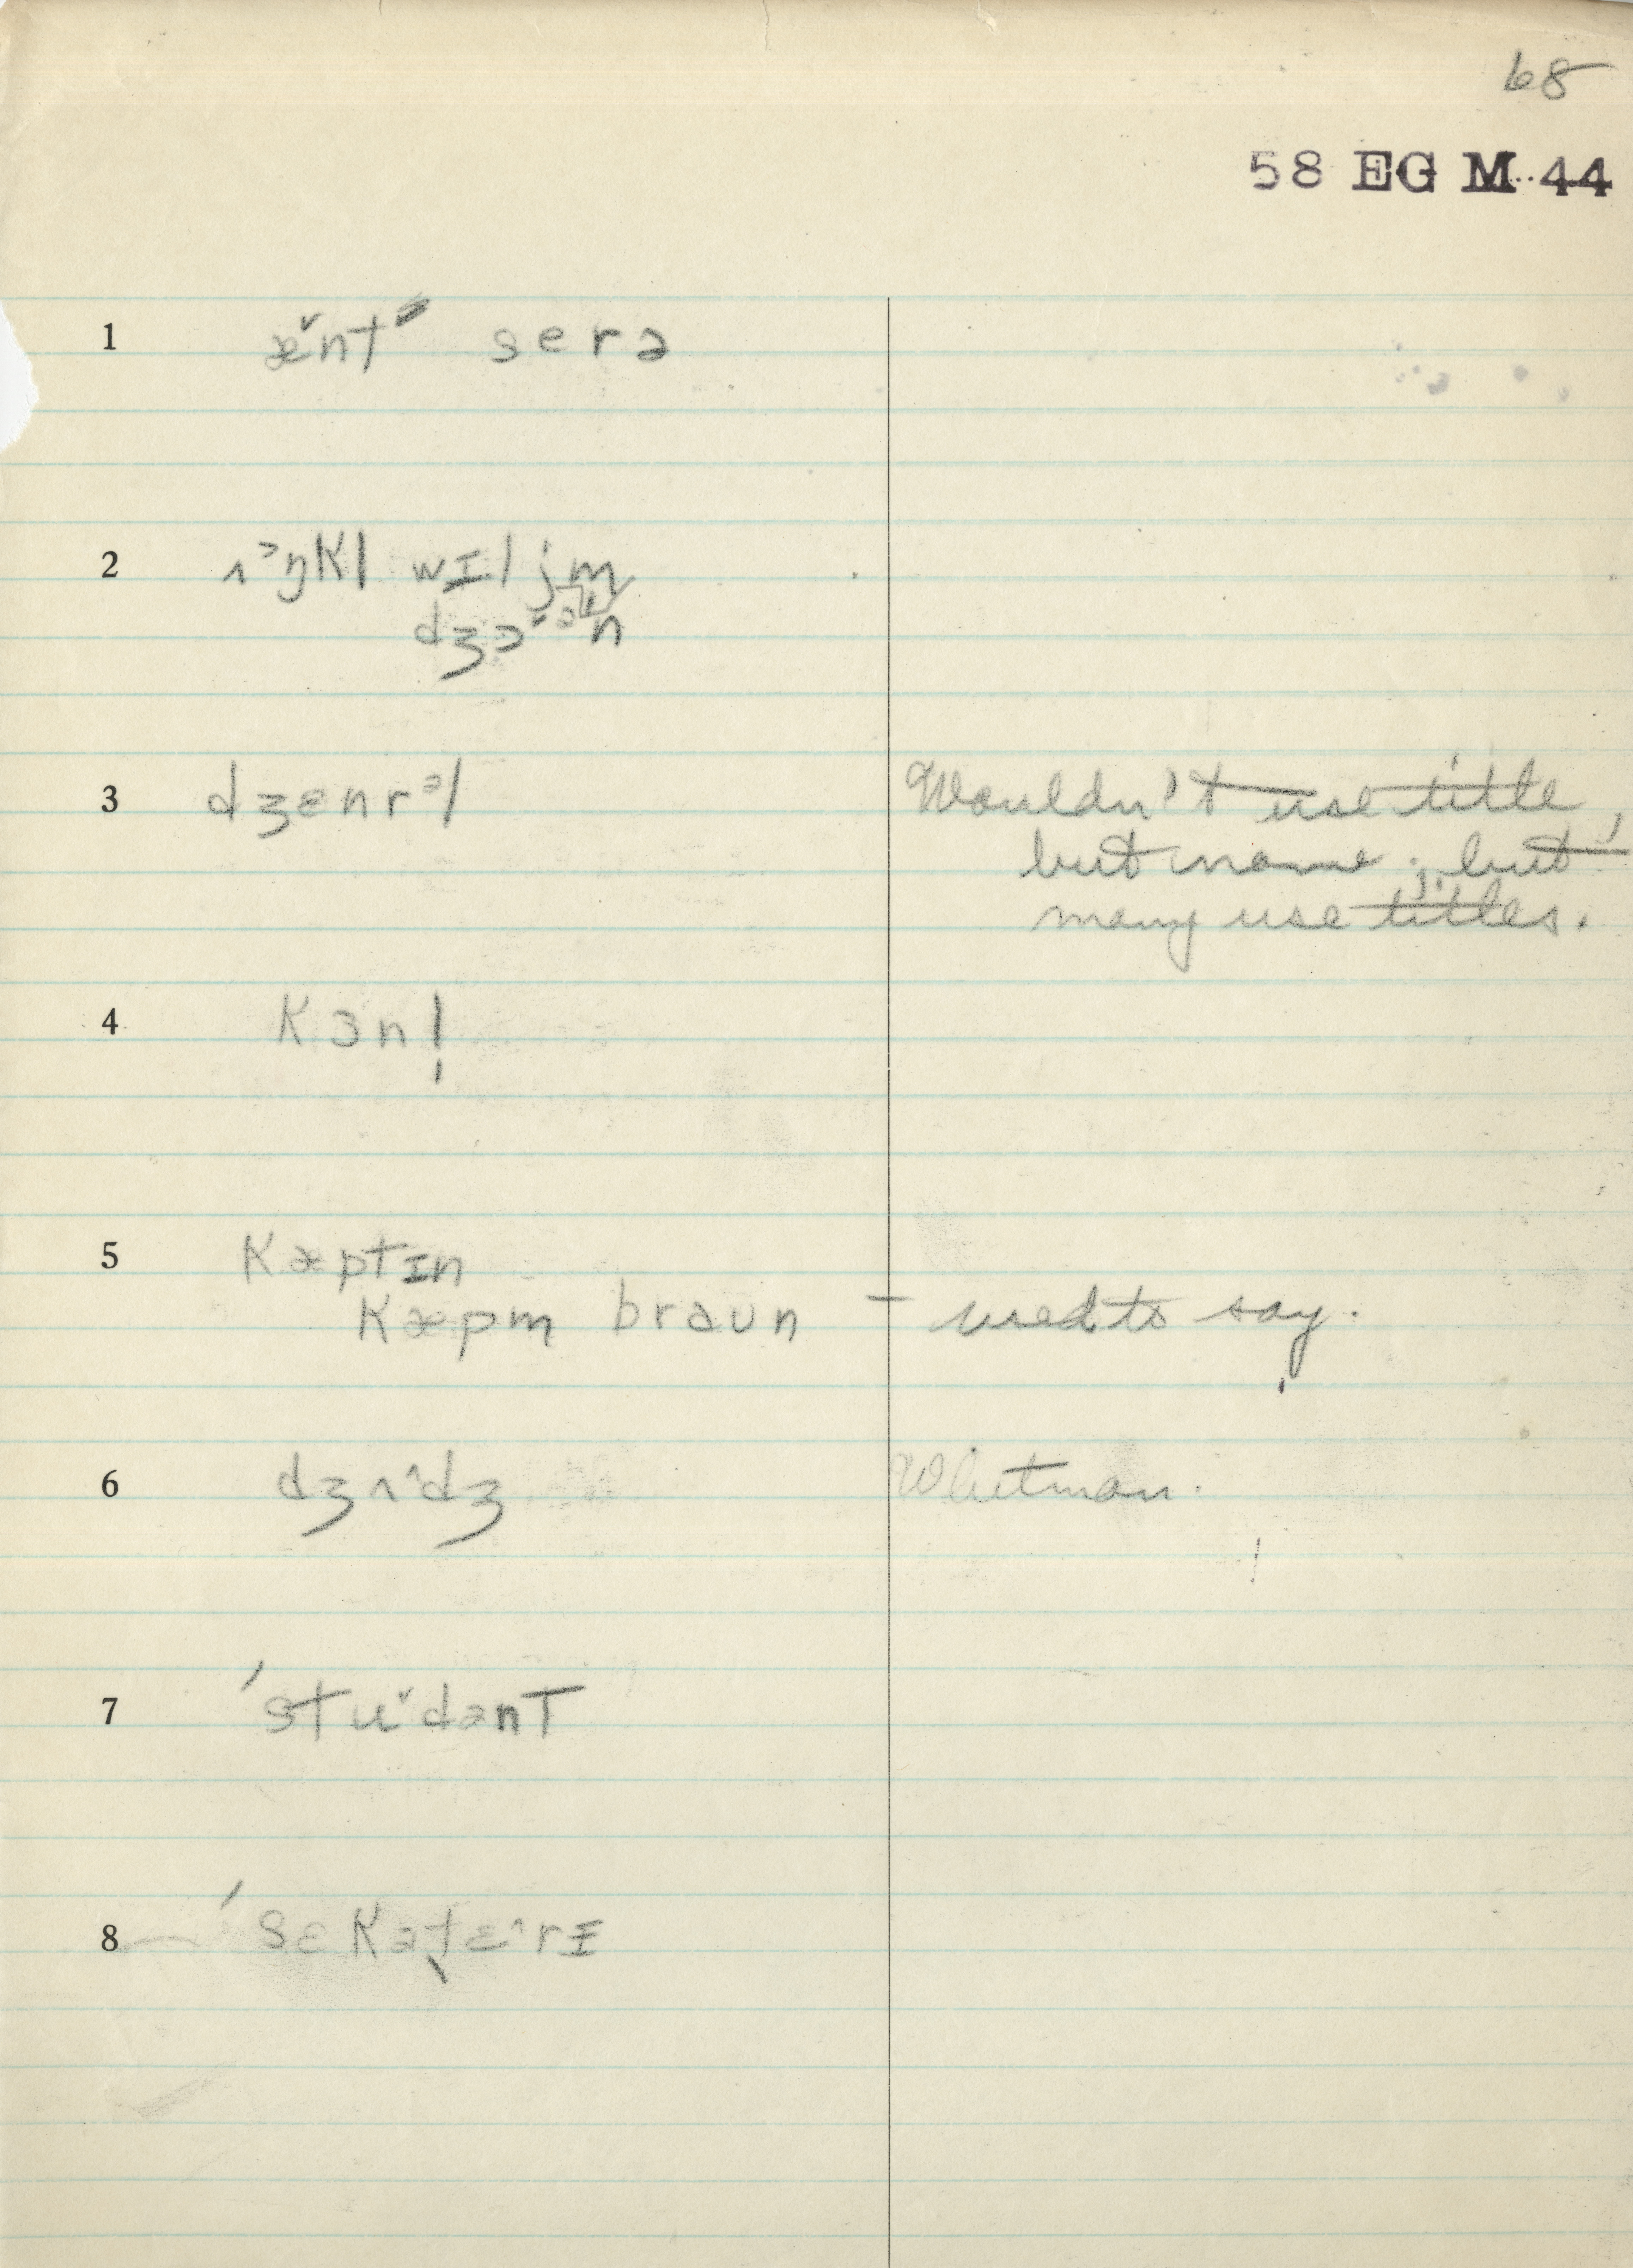 68
58 EG M 44
1 æ̌nt serə
2 ʌᵊŋkl wɪljm
dʒɔˇᵊn
3 dʒɛnrᵊl Wouldn't use title,
but name; but
many use titles.
4 kɜnl̩
5 kæptɪn
kæpm braun – used to say.
6 dʒʌ^dʒ Whitman.
7 ˈstuˇdənt
8 ˈsɛkətɛ^rɪ